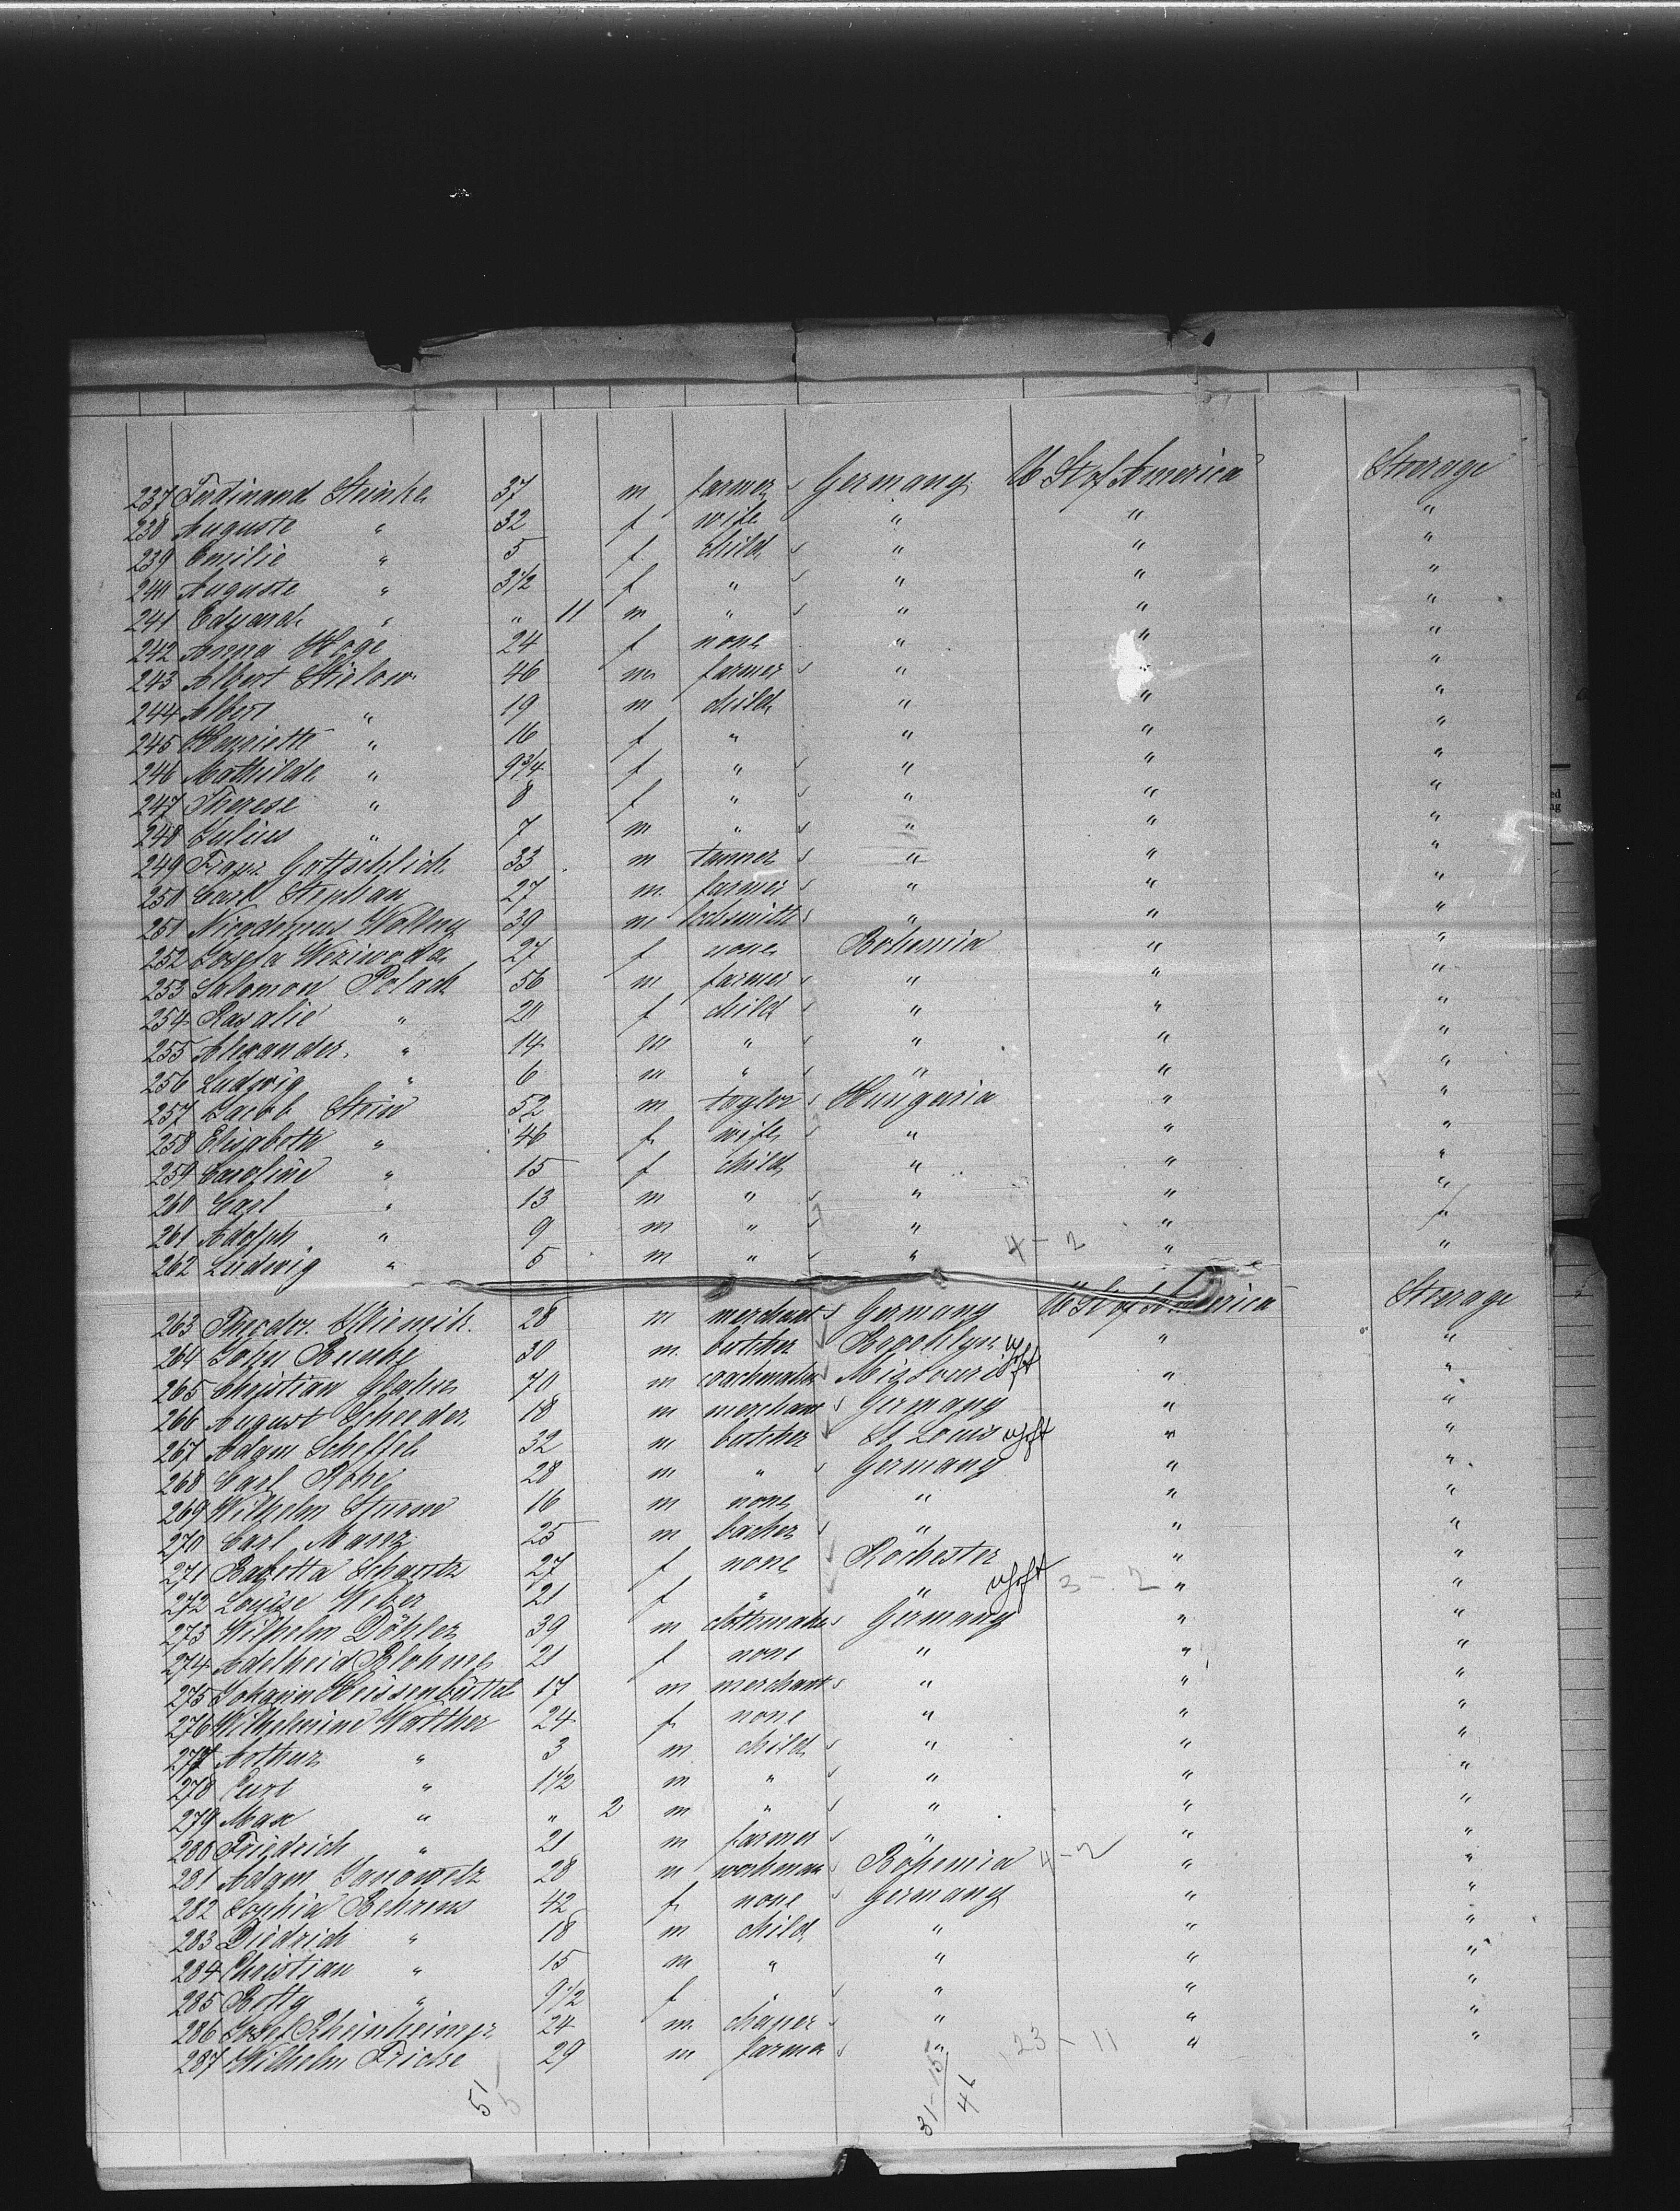 237 Ferdinand Steinke 37 m farmer Germany U St of America Steerage
238 Auguste " 32 f wife " " "
239 Emilie " 5 f child " " "
240 Auguste " 3 1/2 f " " " "
241 Eduard " " 11 m " " " "
242 Anna Hoge 24 f none " " "
243 Albert Stielow 46 m farmer " " "
244 Albert " 19 m child " " "
245 Henriette " 16 f " " " "
246 Mathilde " 9 3/4 f " " " "
247 Therese " 8 f " " " "
248 Julius " 7 m " " " "
249 Franz Gottschlick 33 m tanner " " "
250 Carl Stephan 27 m farmer " " "
251 Nicodemus Wallny 39 m locksmith " " "
252 Josefa 27 f none Bohemia " "
253 Salomon Polack 56 m farmer " " "
254 Rosalie " 20 f child " " "
255 Alexander " 14 m " " " "
256 Ludwig " 6 m " " " "
257 Jacob Stein 52 m taylor Hungaria " "
258 Elisabeth " 46 f wife " " "
259 Caroline " 15 f child " " "
260 Carl " 13 m " " " "
261 Adolph " 9 m " " " "
262 Ludwig " 5 m " " 4-2 " "
263 Theodor 28 m merchant Germany U St of America Steerage
264 John Runke 30 m butcher Brooklyn " "
265 Christian Glahn 70 m coachmaker Missouri " "
266 August Scheeder 18 m merchant Germany " "
267 Adam Scheffel 32 m butcher St Louis " "
268 Carl Rohe 28 m " Germany " "
269 Wilhelm Sturm 16 m none " " "
270 Carl Manz 25 m backer " " "
271 Babetta Schantz 27 f none Rochester " "
272 Louise Weber 21 f " " 3-2 " "
273 Wilhelm Döhler 39 m clothmaker Germany " "
274 Adelheid Blohme 21 f none " " "
275 Johann Heissenbüttel 17 m merchant " " "
276 Wilhelmine Walther 24 f none " " "
277 Arthur " 3 m child " " "
278 Curt " 1 1/2 m " " " "
279 Max " " 2 m " " " "
280 Friedrich " 21 m farmer " " "
281 Adam Janowetz 28 m workman Bohemia 4-2 " "
282 Sophia Behrens 42 f none Germany " "
283 Diedrich " 18 m child " " "
284 Christian " 15 m " " " "
285 Betty " 9 1/2 f " " " "
286 Josef Rheinheimer 24 m " " "
287 Wilhelm Fricke 29 m farmer " 23-11 " "
51
5
31-15
46